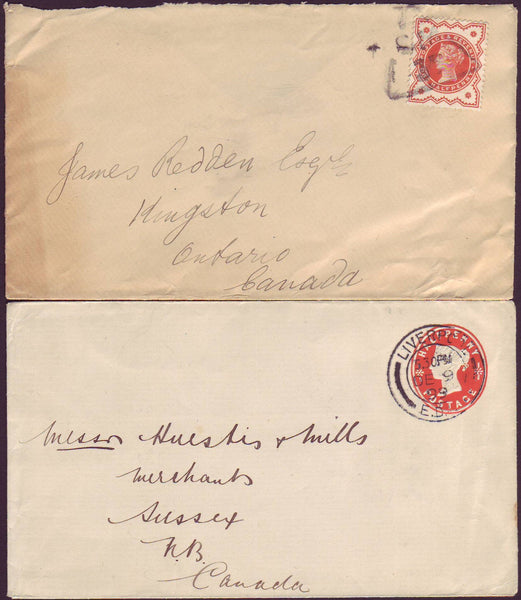 POSTAGE & REVENUE
HALFPENNY
James Redden Esqre
Kingston
Ontario
Canada
LIVERPOOL
HALFPENNY
DE 9
99
E.D.
POSTAGE
Messrs Huestis & Mills
Merchants
Sussex
N.B.
Canada